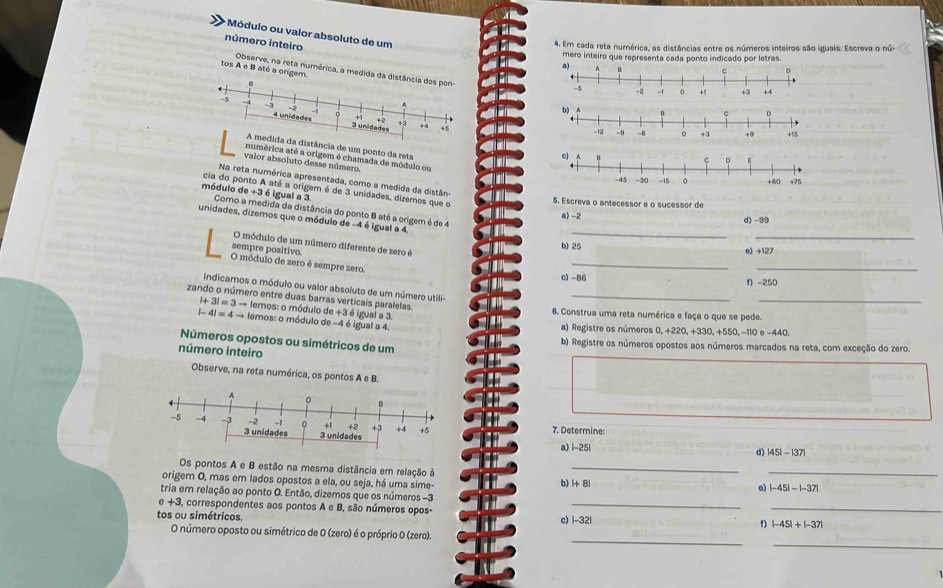 Módulo ou valor absoluto de um
número inteiro
Observe, na reta numérica, a medida da distância dos pon-
tos A e B até a origem.
B A
-5 -4 -3 -2 -1 0 +1 +2 +3 +4 +5
4 unidades 3 unidades
A medida da distância de um ponto da reta
numérica até a origem é chamada de módulo ou
valor absoluto desse número.
Na reta numérica apresentada, como a medida da distân-
cia do ponto A até a origem é de 3 unidades, dizemos que o
módulo de +3 é igual a 3.
Como a medida da distância do ponto B até a origem é de 4
unidades, dizemos que o módulo de -4 é igual a 4.
O módulo de um número diferente de zero é
sempre positivo.
O módulo de zero é sempre zero.
Indicamos o módulo ou valor absoluto de um número utili-
zando o número entre duas barras verticais paralelas.
|+ 3| = 3 → lemos: o módulo de +3 é igual a 3.
|- 4| = 4 → lemos: o módulo de -4 é igual a 4.
Números opostos ou simétricos de um
número inteiro
Observe, na reta numérica, os pontos A e B.
A O B
-5 -4 -3 -2 -1 0 +1 +2 +3 +4 +5
3 unidades 3 unidades
Os pontos A e B estão na mesma distância em relação à
origem O, mas em lados opostos a ela, ou seja, há uma sime-
tria em relação ao ponto O. Então, dizemos que os números -3
e +3, correspondentes aos pontos A e B, são números opos-
tos ou simétricos.
O número oposto ou simétrico de 0 (zero) é o próprio 0 (zero).
4. Em cada reta numérica, as distâncias entre os números inteiros são iguais. Escreva o nú-
mero inteiro que representa cada ponto indicado por letras.
a) A B C D
-5 -2 -1 0 +1 +3 +4
b) A B C D
-12 -9 -6 0 +3 +9 +15
c) A B C D E
-45 -30 -15 0 +60 +75
5. Escreva o antecessor e o sucessor de
a) -2 d) -99
b) 25 e) +127
c) -86 f) -250
6. Construa uma reta numérica e faça o que se pede.
a) Registre os números 0, +220, +330, +550, -110 e -440.
b) Registre os números opostos aos números marcados na reta, com exceção do zero.
7. Determine:
a) |-25| d) |45| - |37|
b) |+ 8| e) |-45| - |-37|
c) |-32| f) |-45| + |-37|